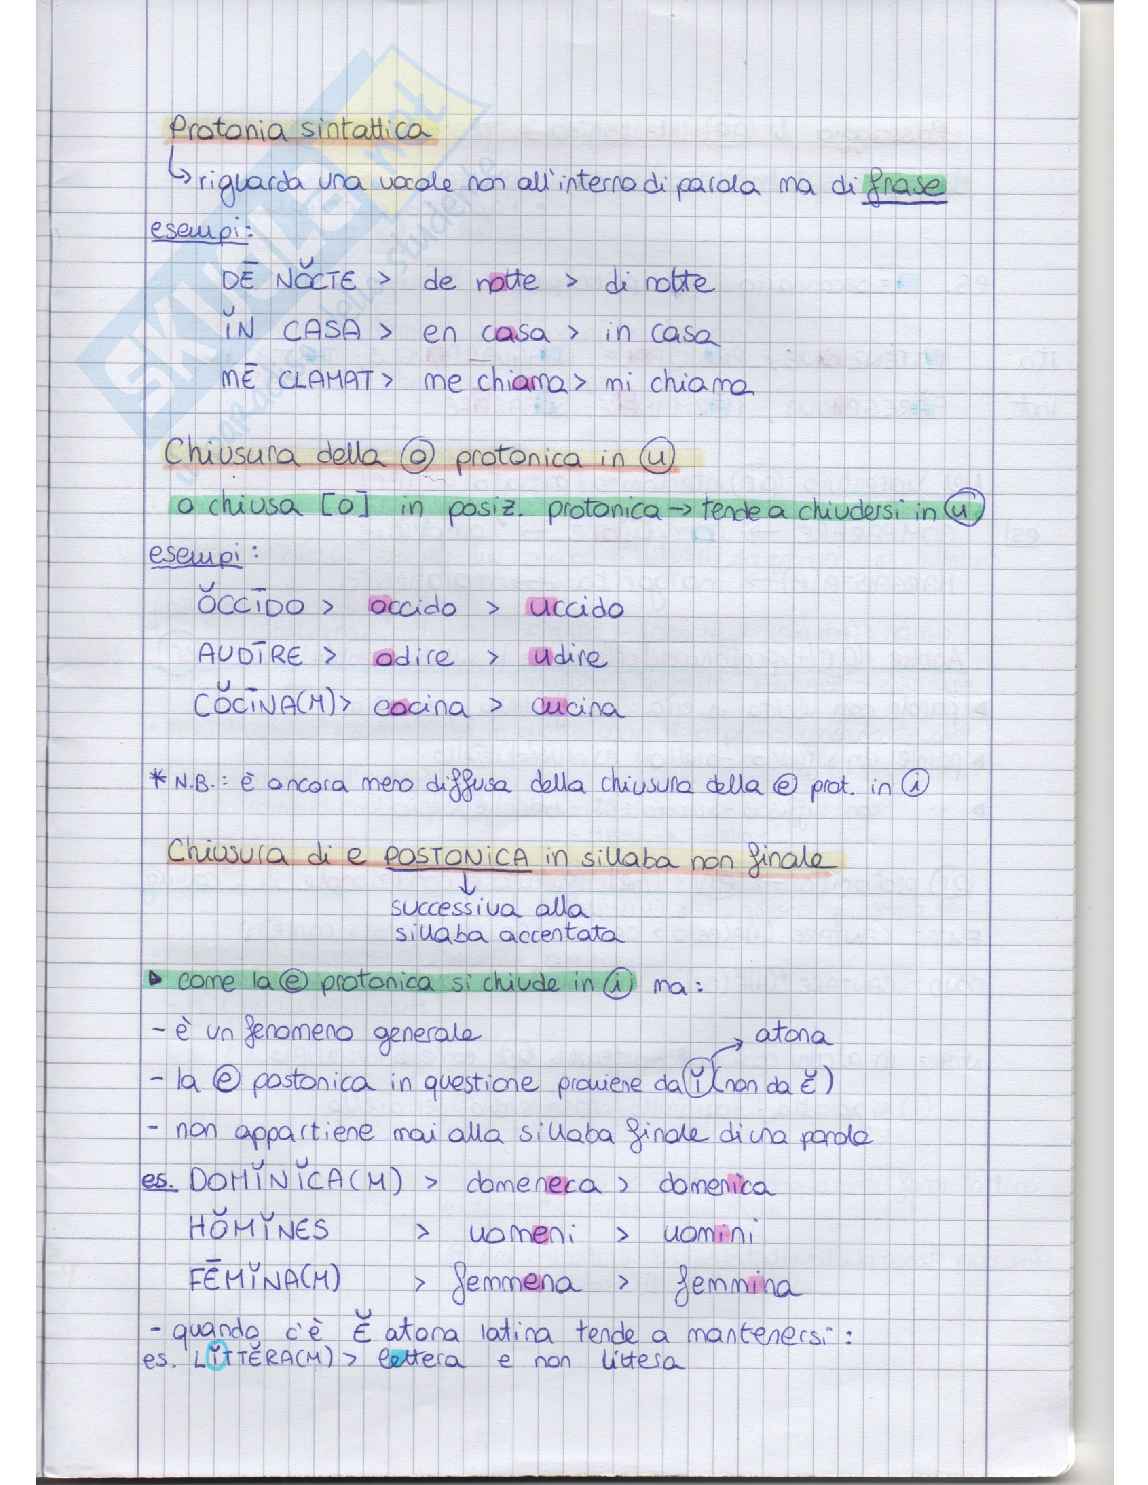 Protonia sintattica
↳ riguarda una vocale non all'interno di parola ma di frase
esempi:
DĒ NŎCTE > de notte > di notte
ĬN CASA > en casa > in casa
MĒ CLAMAT > me chiama > mi chiama
Chiusura della o protonica in u
o chiusa [o] in posiz. protonica → tende a chiudersi in u
esempi:
ŎCCĪDO > occido > uccido
AUDĪRE > odire > udire
CŎCĪNA(M) > cocina > cucina
* N.B.: è ancora meno diffusa della chiusura della e prot. in i
Chiusura di e POSTONICA in sillaba non finale
↓
successiva alla
sillaba accentata
▶ come la e protonica si chiude in i ma:
- è un fenomeno generale
→ atona
- la e postonica in questione proviene da Ĭ (non da Ĕ)
- non appartiene mai alla sillaba finale di una parola
es. DOMĬNĬCA(M) > domeneca > domenica
HŎMĬNES > uomeni > uomini
FĒMĬNA(M) > femmena > femmina
- quando c'è Ĕ atona latina tende a mantenersi:
es. LĬTTĔRA(M) > lettera e non littera
SKUOLA.net